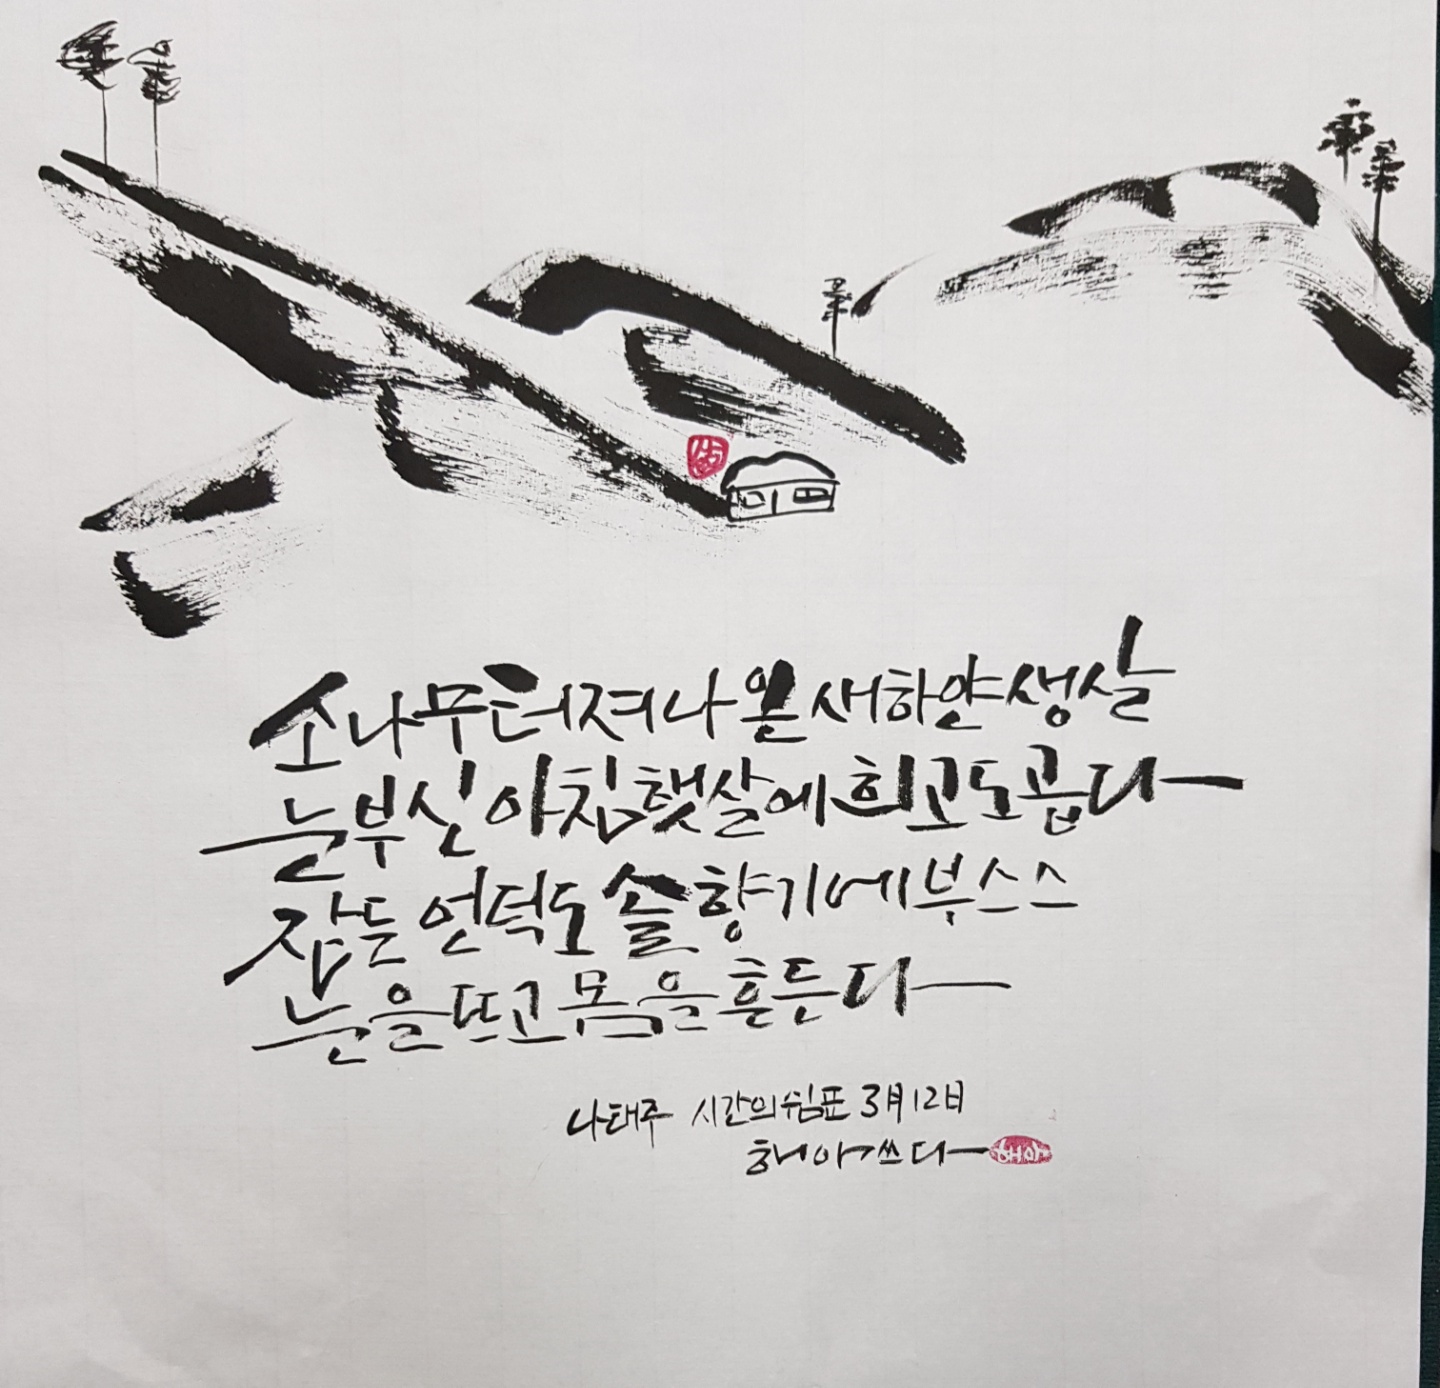 소나무 터져나온 새하얀 생살
눈부신 아침햇살에 희고도 곱다
잠든 언덕도 솔향기에 부스스
눈을 뜨고 몸을 흔든다
나태주 시간의 쉼표 3月12日
해아 쓰다
해아